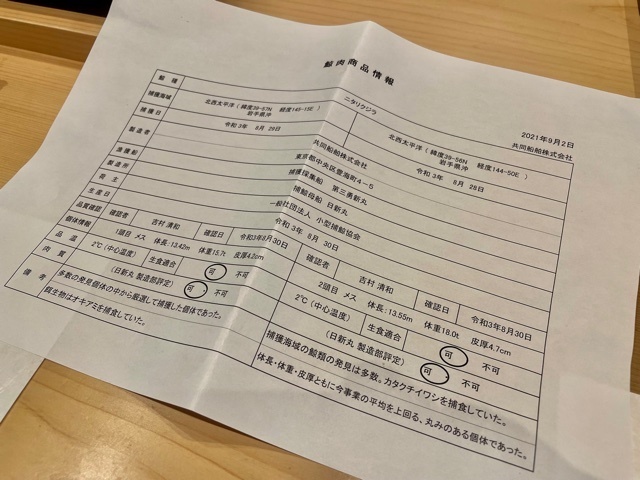 鯨肉商品情報
2021年9月2日
共同船舶株式会社
鯨種 ニタリクジラ
捕獲海域 北西太平洋(緯度39-57N 経度145-15E) 岩手県沖 北西太平洋(緯度39-56N 経度144-50E) 岩手県沖
捕獲日 令和3年 8月29日 令和3年 8月28日
製造者 共同船舶株式会社
東京都中央区豊海町4-5
漁獲船 捕獲採集船 第三勇新丸
製造所 捕鯨母船 日新丸
荷主 一般社団法人 小型捕鯨協会
生産日 令和3年 8月30日
品質確認 確認者 吉村 清和 確認日 令和3年8月30日 確認者 吉村 清和 確認日 令和3年8月30日
個体情報 1頭目 メス 体長:13.42m 体重15.7t 皮厚4.2cm 2頭目 メス 体長:13.55m 体重18.0t 皮厚4.7cm
品温 2℃(中心温度) 生食適合 可 不可 2℃(中心温度) 生食適合 可 不可
肉質 (日新丸 製造部評定) 可 不可 (日新丸 製造部評定) 可 不可
備考 多数の発見個体の中から厳選して捕獲した個体であった。 捕獲海域の鯨類の発見は多数。カタクチイワシを捕食していた。
餌生物はオキアミを捕食していた。 体長・体重・皮厚ともに今事業の平均を上回る、丸みのある個体であった。